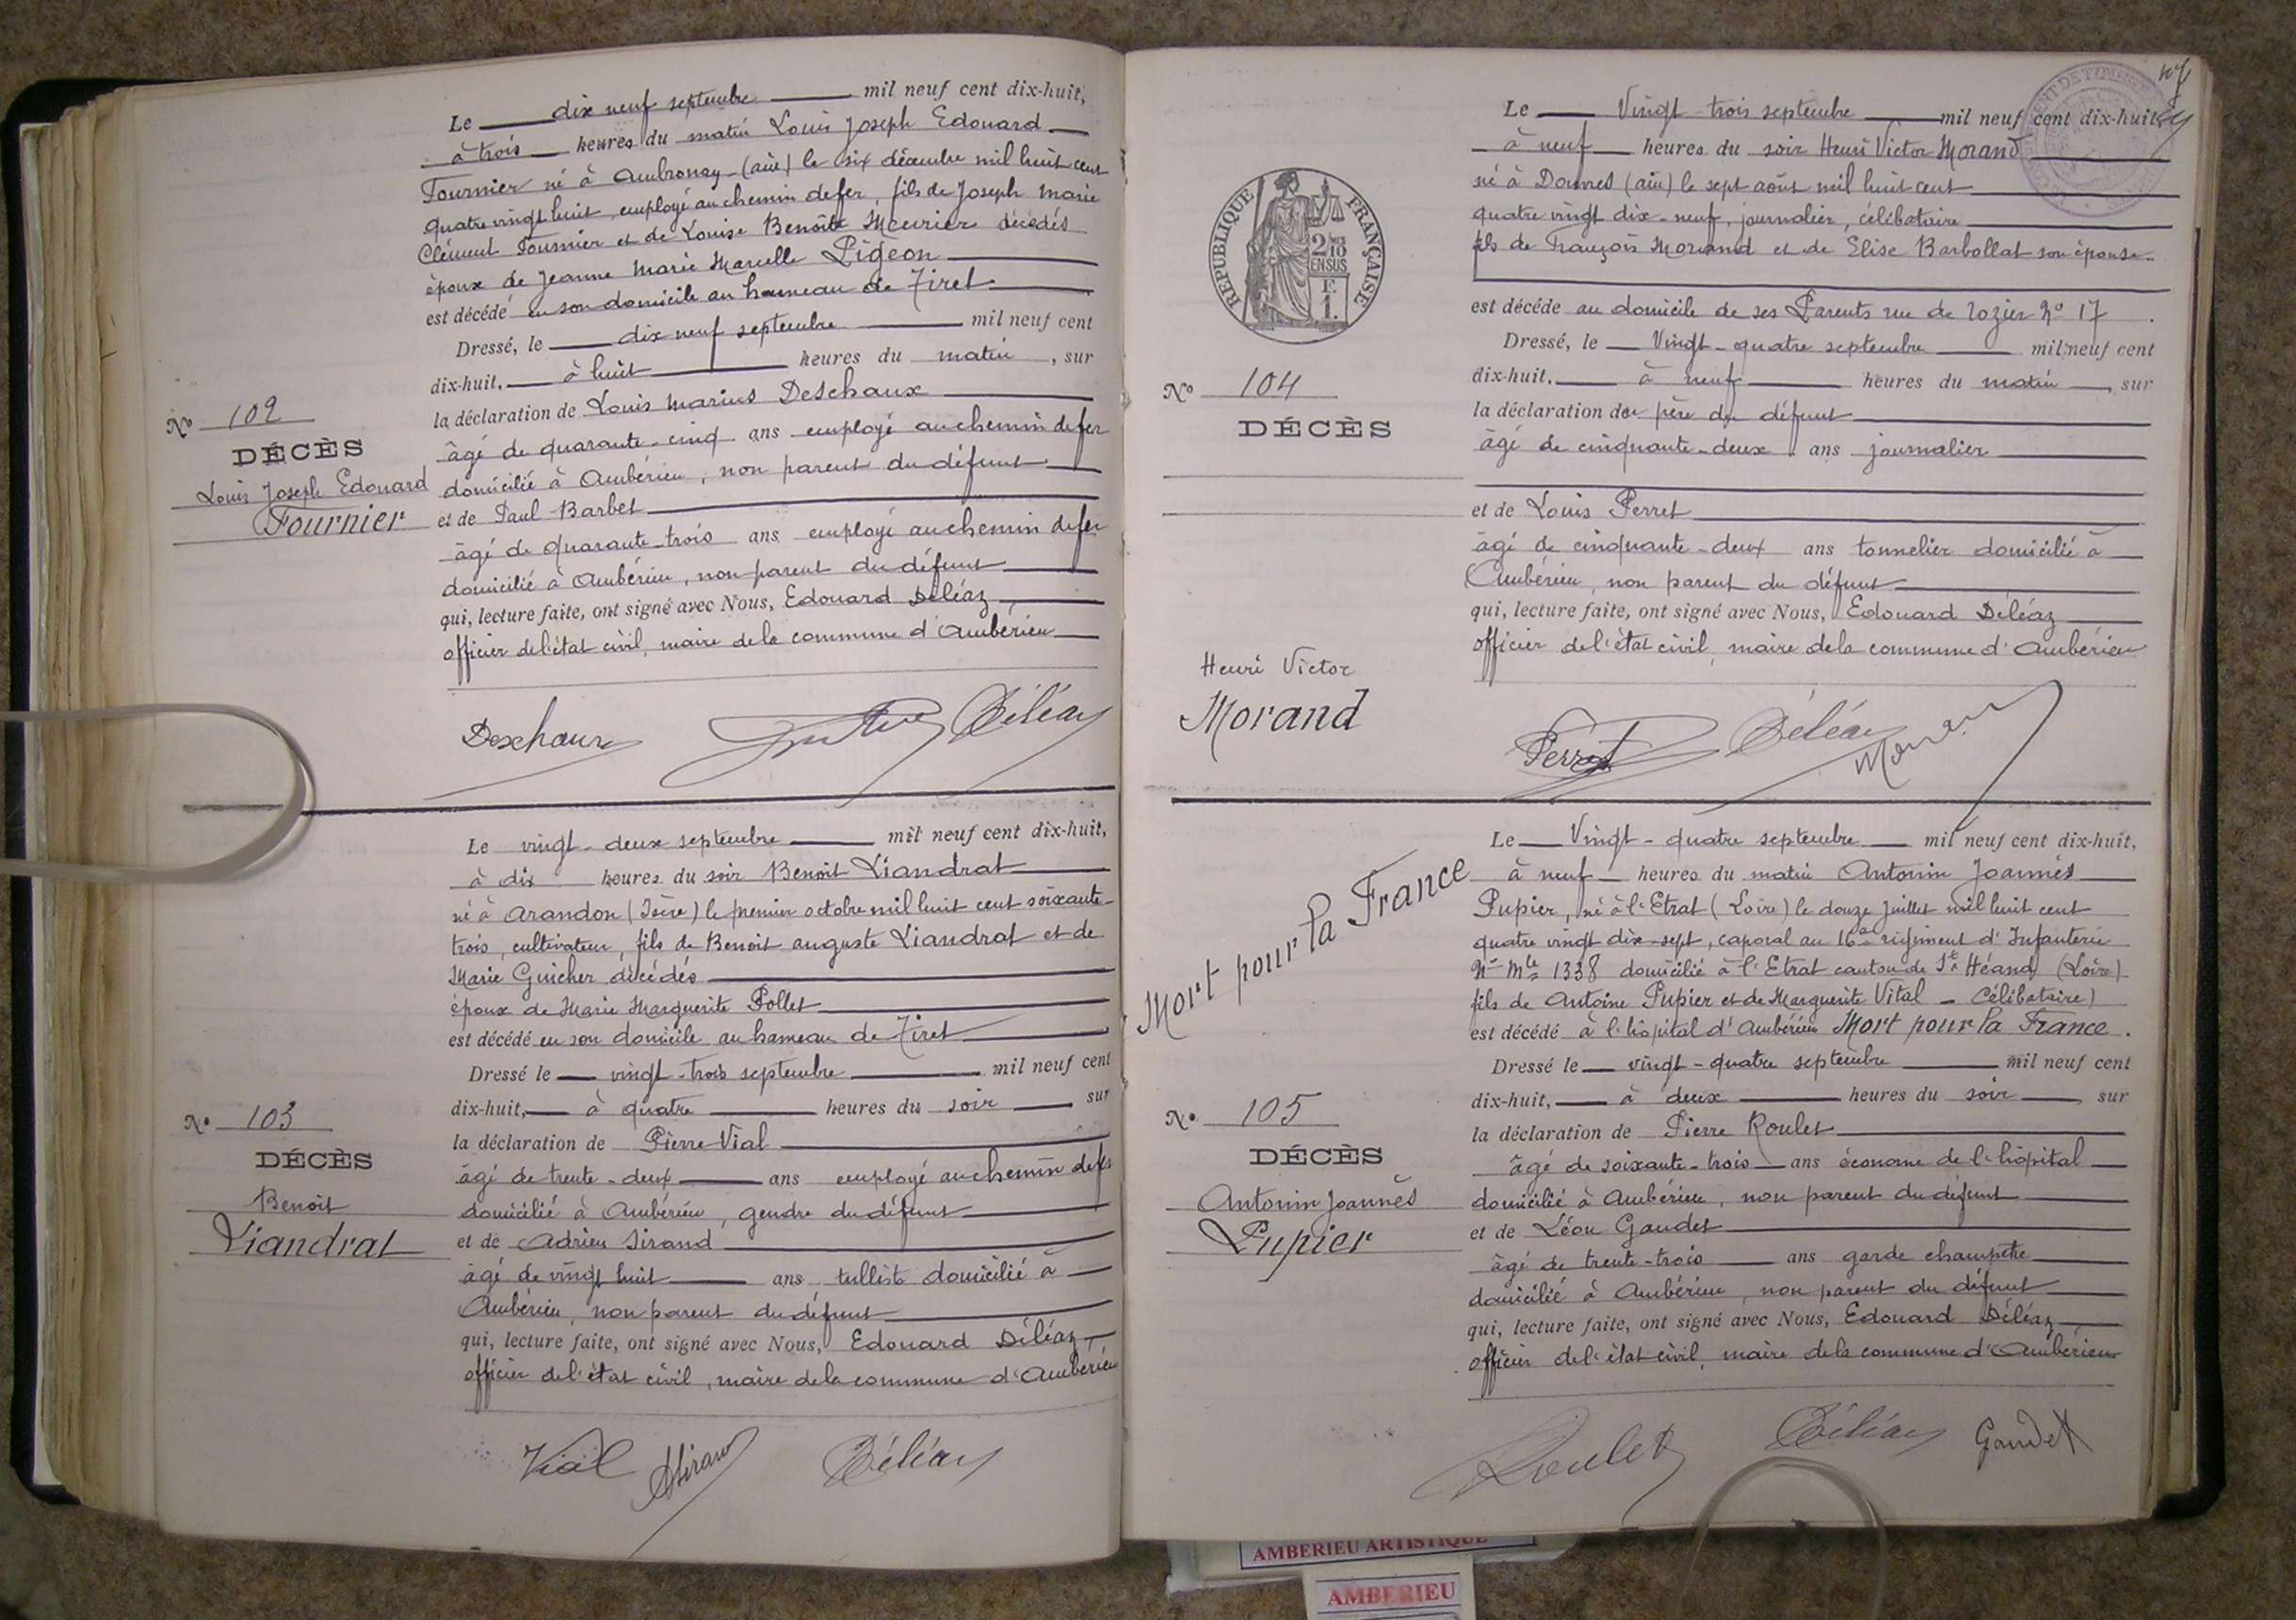 Le dix neuf septembre mil neuf cent dix-huit,
à trois heures du matin Louis Joseph Edouard
Fournier né à Ambronay (ain) le six décembre mil huit cent
quatre vingt huit, employé au chemin de fer, fils de Joseph Marie
Clément Fournier et de Louise Benoîte Meurier décédés
époux de Jeanne Marie Marcelle Pigeon
est décédé en son domicile au hameau de Tiret
Dressé, le dix neuf septembre mil neuf cent
dix-huit, à huit heures du matin, sur
la déclaration de Louis Marius Deschaux
âgé de quarante-cinq ans employé au chemin de fer
domicilié à Ambérieu, non parent du défunt
et de Paul Barbet
âgé de quarante-trois ans employé au chemin de fer
domicilié à Ambérieu, non parent du défunt
qui, lecture faite, ont signé avec Nous, Edouard Déléaz,
officier de l'état civil, maire de la commune d'Ambérieu
No 102
DÉCÈS
Louis Joseph Edouard
Fournier
Deschaux Déléaz
Le vingt-deux septembre mil neuf cent dix-huit,
à dix heures du soir Benoit Liandrat
né à Arandon (Isère) le premier octobre mil huit cent soixante-
trois, cultivateur, fils de Benoit auguste Liandrat et de
Marie Guicher décédés
époux de Marie Marguerite Pollet
est décédé en son domicile au hameau de Tiret
Dressé le vingt-trois septembre mil neuf cent
dix-huit, à quatre heures du soir sur
la déclaration de Pierre Vial
âgé de trente-deux ans employé au chemin de fer
domicilié à Ambérieu, gendre du défunt
et de Adrien Sirand
âgé de vingt huit ans tulliste domicilié à
Ambérieu, non parent du défunt
qui, lecture faite, ont signé avec Nous, Edouard Déléaz,
officier de l'état civil, maire de la commune d'Ambérieu
No 103
DÉCÈS
Benoit
Liandrat
Vial ASirand Déléaz
Le Vingt-trois septembre mil neuf cent dix-huit,
à neuf heures du soir Henri Victor Morand
né à Douvres (ain) le sept août mil huit cent
quatre vingt dix-neuf, journalier, célibataire
fils de François Morand et de Elise Barbollat son épouse
est décédé au domicile de ses Parents rue de rozier No 17.
Dressé, le Vingt-quatre septembre mil neuf cent
dix-huit, à neuf heures du matin, sur
la déclaration du père du défunt
âgé de cinquante-deux ans journalier
et de Louis Perret
âgé de cinquante-deux ans tonnelier domicilié à
Ambérieu, non parent du défunt
qui, lecture faite, ont signé avec Nous, Edouard Déléaz
officier de l'état civil, maire de la commune d'Ambérieu
RÉPUBLIQUE FRANÇAISE
2/10
EN SUS
F.
1.
No 104
DÉCÈS
Henri Victor
Morand
Perret Déléaz Morand
Le Vingt-quatre septembre mil neuf cent dix-huit,
à neuf heures du matin Antonin Joannès
Pupier, né à l'Etrat (Loire) le douze juillet mil huit cent
quatre vingt dix-sept, caporal au 16e régiment d'Infanterie
No Mle 1338 domicilié à l'Etrat canton de St Héand (Loire)
fils de Antoine Pupier et de Marguerite Vital - Célibataire)
est décédé à l'hôpital d'Ambérieu Mort pour la France.
Dressé le vingt-quatre septembre mil neuf cent
dix-huit, à deux heures du soir, sur
la déclaration de Pierre Roulet
âgé de soixante-trois ans économe de l'hôpital
domicilié à Ambérieu, non parent du défunt
et de Léon Gaudet
âgé de trente-trois ans garde champêtre
domicilié à Ambérieu, non parent du défunt
qui, lecture faite, ont signé avec Nous, Edouard Déléaz,
officier de l'état civil, maire de la commune d'Ambérieu
Mort pour la France
No 105
DÉCÈS
Antonin Joannès
Pupier
Roulet Déléaz Gaudet
AMBERIEU ARTISTIQUE
AMBERIEU